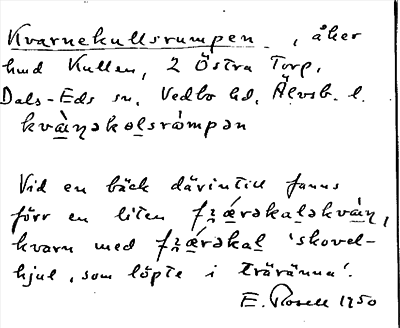 Kvarnekullsrumpen, åker
hmd Kullen, 2 Östra Torp,
Dals-Eds sn, Vedbo hd, Älvsb. l.
kvà̱ŋəko̱lsrà̱mpən
Vid en bäck därintill fanns
förr en liten fǽ̱rəkaləkvà̱ŋ,
kvarn med fǽ̱rəkal̲ 'skovel-
hjul, som löpte i träränna'.
E. Rosell 1950